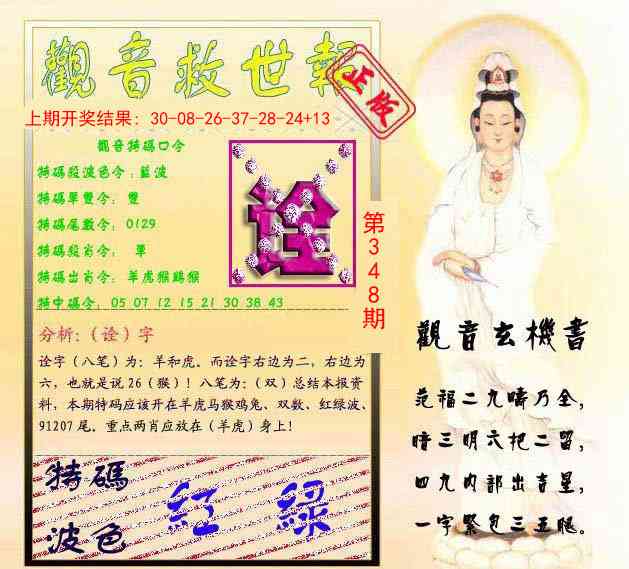 觀音救世報
正版
上期开奖结果：30-08-26-37-28-24+13
觀音特碼口令
特碼殺波色令：藍波
特碼單雙令： 雙
特碼尾數令： 0129
特碼殺肖令： 單
特碼出肖令： 羊虎猴鷄猴
特中碼令： 05 07 12 15 21 30 38 43
诠
第348期
分析:（诠）字
诠字（八笔）为：羊和虎。而诠字右边为二，右边为
六，也就是说26（猴）！八笔为：（双）总结本报资
料，本期特码应该开在羊虎马猴鸡兔、双数、红绿波、
91207尾。重点两肖应放在（羊虎）身上！
特碼
波色
紅 綠
觀音玄機書
范福二九疇乃全，
暗三明六把二留，
四九内部出吉星，
一字緊包三五腿。